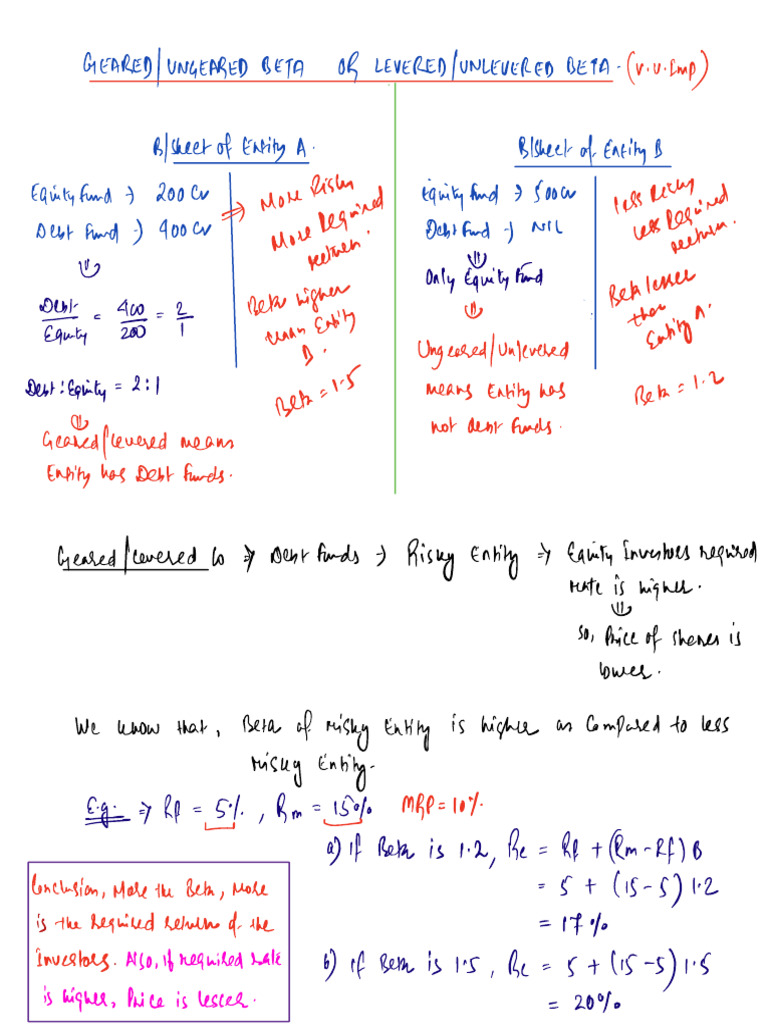 GEARED/UNGEARED BETA OR LEVERED/UNLEVERED BETA. (V.V.Imp)
B/Sheet of Entity A.
Equity Fund → 200 Cr
Debt Fund → 400 Cr
Debt/Equity = 400/200 = 2/1
Debt : Equity = 2:1
Geared/Levered means
Entity has Debt Funds.
⇒ More Risky
More Required
return.
Beta higher
than Entity
B.
Beta = 1.5
B/Sheet of Entity B
Equity Fund → 500 Cr
Debt Fund → NIL
Only Equity Fund
Ungeared/Unlevered
means Entity has
not debt funds.
Less Risky
Less Required
return.
Beta lesser
than
Entity A.
Beta = 1.2
Geared/Levered Co ⇒ Debt funds → Risky Entity ⇒ Equity Investors required
rate is higher.
So, Price of shares is
lower.
We know that, Beta of risky Entity is higher as compared to less
risky Entity.
E.g. ⇒ Rf = 5%, Rm = 15% MRP = 10%
a) If Beta is 1.2, Re = Rf + (Rm - Rf) B
= 5 + (15 - 5) 1.2
= 17%
b) if Beta is 1.5, Re = 5 + (15 - 5) 1.5
= 20%
Conclusion, More the Beta, More
is the required return of the
Investors. Also, if required rate
is higher, Price is lesser.